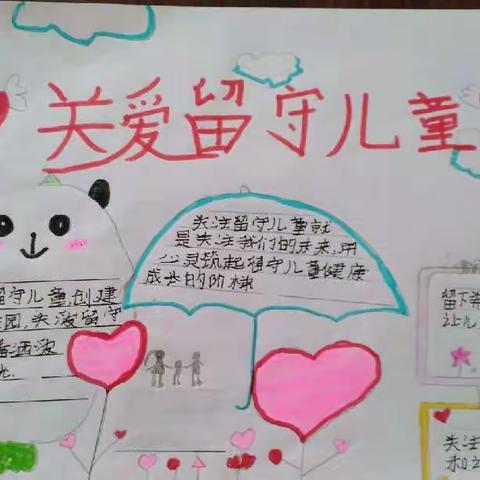 关爱留守儿童
关注留守儿童就
是关注我们的未来,用
心灵筑起留守儿童健康
成长的阶梯
留守儿童创建
园,关爱留守
洒
留下
让儿
关注
和